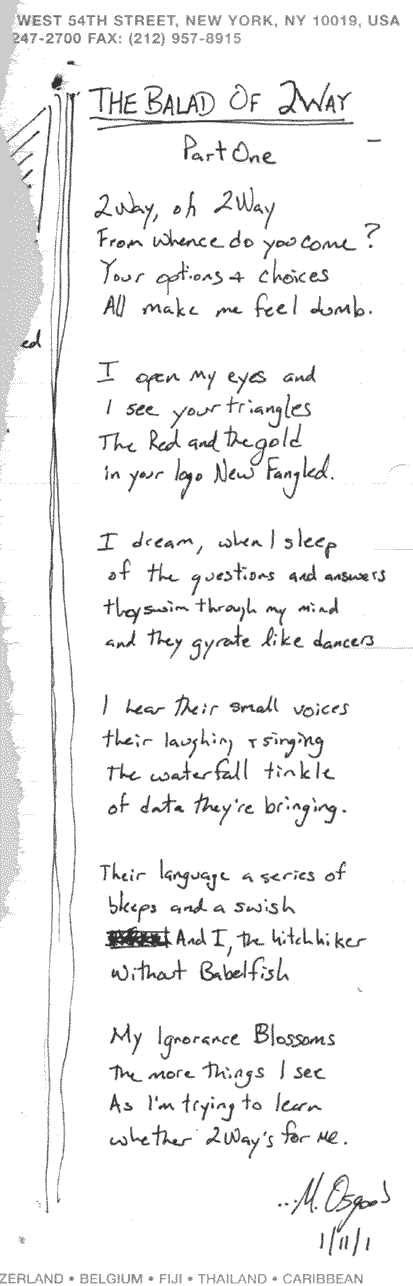 WEST 54TH STREET, NEW YORK, NY 10019, USA
247-2700 FAX: (212) 957-8915
THE BALAD OF 2WAY
Part One
2Way, oh 2Way
From whence do you come?
Your options + choices
All make me feel dumb.
ed
I open my eyes and
I see your triangles
The Red and the gold
in your logo New Fangled.
I dream, when I sleep
of the questions and answers
they swim through my mind
and they gyrate like dancers
I hear their small voices
their laughing + singing
The waterfall tinkle
of data they're bringing.
Their language a series of
bleeps and a swish
And I, the hitchhiker
without Babelfish
My Ignorance Blossoms
The more things I see
As I'm trying to learn
whether 2Way's for me.
...M. Osgood
1/11/1
ZERLAND • BELGIUM • FIJI • THAILAND • CARIBBEAN